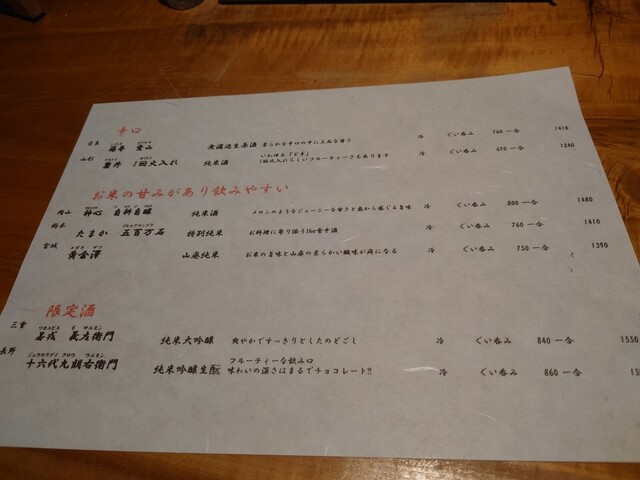 辛口
奈良 篠峯 愛山 無濾過生原酒 柔らかな辛口の中に上品な甘さ 冷 ぐい呑み 760 一合 1410
山形 鯉川 1回火入れ 純米酒 いわゆる「ど辛」
1回火入れらしいフルーティーさもあります 冷 ぐい呑み 670 一合 1240
お米の甘みがあり飲みやすい
岡山 神心 自耕自醸 純米酒 メロンのようなジューシーな甘さと鼻から感じる旨味 冷 ぐい呑み 800 一合 1480
栃木 たまか 五百万石 特別純米 お料理に寄り添うthe食中酒 冷 ぐい呑み 760 一合 1410
宮城 黄金澤 山廃純米 お米の旨味と山廃の柔らかい酸味が虜になる 冷 ぐい呑み 750 一合 1390
限定酒
三重 若戎 義左衛門 純米大吟醸 爽やかですっきりとしたのどごし 冷 ぐい呑み 840 一合 1550
長野 十六代九郎右衛門 純米吟醸生酛 フルーティーな飲み口
味わいの深さはまるでチョコレート!! 冷 ぐい呑み 860 一合